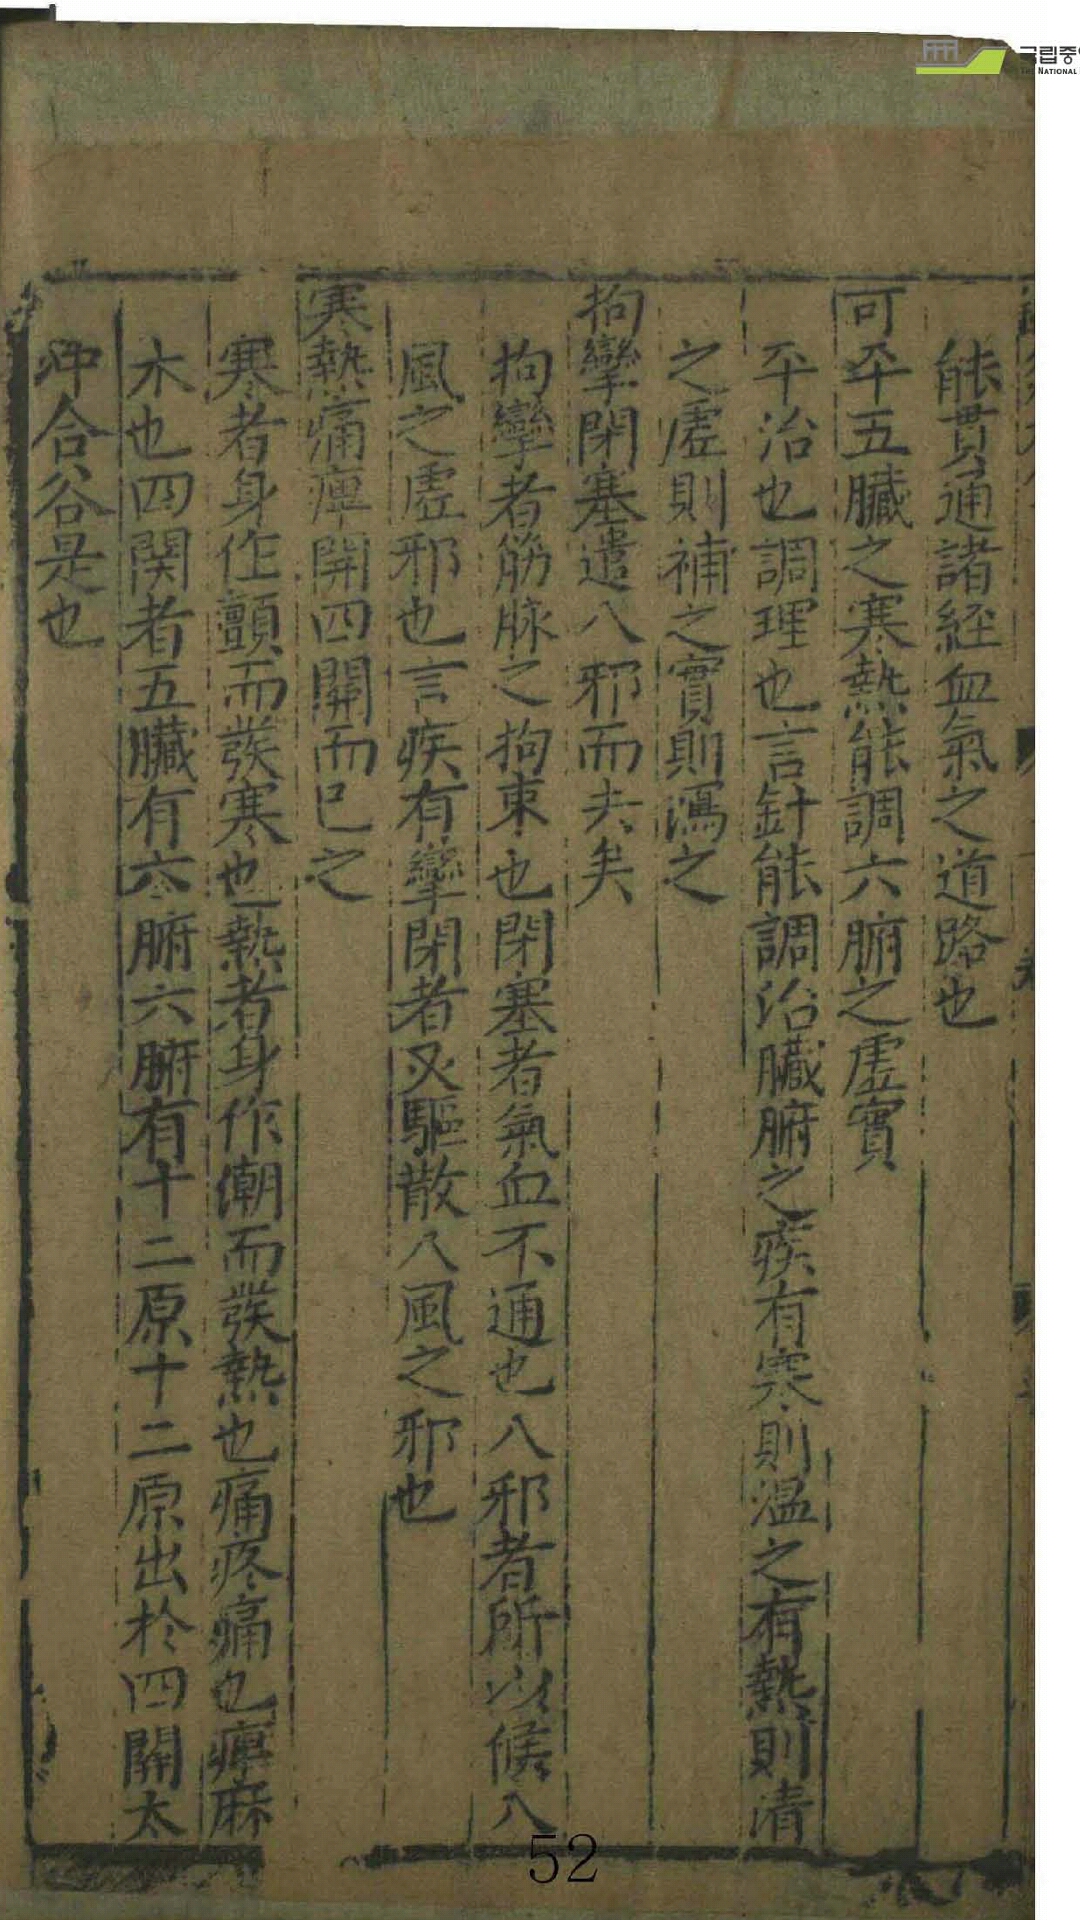 能貫通諸経血氣之道路也
可平五臟之寒熱能調六腑之虛實
平治也調理也言針能調治臟腑之疾有寒則温之有熱則清
之虛則補之實則瀉之
拘攣閉塞遣八邪而去矣
拘攣者筋脉之拘束也閉塞者氣血不通也八邪者所以候八
風之虛邪也言疾有攣閉者必驅散八風之邪也
寒熱痛痺開四關而已之
寒者身作顫而發寒也熱者身作潮而發熱也痛疼痛也痺麻
木也四関者五臟有六腑六腑有十二原十二原出於四關太
冲合谷是也
국립중
NATIONAL
52